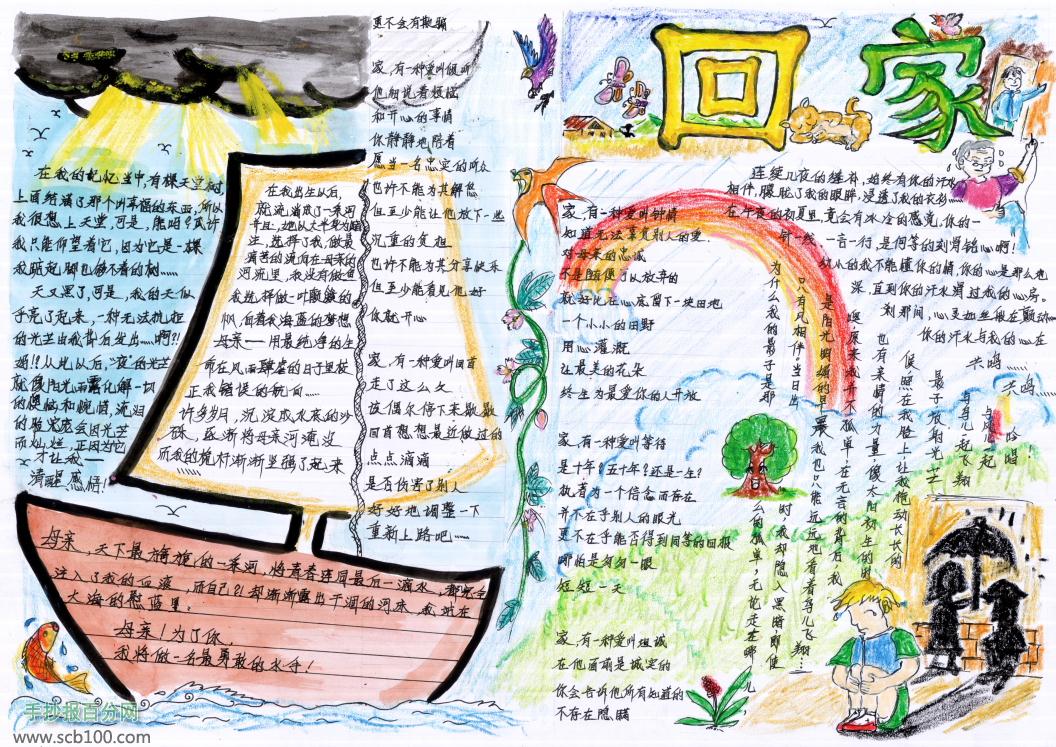 回家
在我的记忆当中,有棵天堂树
上面结满了那个叫幸福的东西,所以
我很想上天堂,可是,能吗?或许
我只能仰望着它,因为它是一棵
我踮起脚也够不着的树……
天又黑了,可是,我的天似
乎亮了起来,一种无法抗拒
的光芒由我背后发出……啊?!
妈!!从此以后,“夜”的光芒
就像阳光雨露化解一切
的烦恼和惋惜,流泪
的脸
会因光芒
而灿烂,正因为它
才让我——
清醒、感悟!
在我出生以后,
就流淌成了一条河
选择了我,做最
清楚的流向在母亲的
河流里,我没有做鱼
我选择做一叶飘飖的
帆,向着我海蓝的梦想
母亲——用最纯净的生
命在风雨肆虐的日子里校
正我错误的航向……
许多岁月,沉淀成水底的沙
砾,逐渐将母亲河淹没
而我的桅杆渐渐坚强了起来
……
母亲,天下最旖旎的一条河,将青春连同最后一滴水,都完全
注入了我的血液,而自己?!却渐渐露出干涸的河床,我站在
大海的慰蓝里。
母亲!为了你,
我将做一名最勇敢的水手!
更不会有欺骗
家,有一种爱叫倾听
他朝说着烦恼
和开心的事情
你静静地陪着
愿当一名忠实的听众
也许不能为其解愁
但至少能让他放下一些
沉重的负担
也许不能为其分享快乐
但至少能看见他好
你就开心
家,有一种爱叫回首
走了这么久
该偶尔停下来歇歇
回首想想最近做过的
点点滴滴
是否伤害了别人
好好地调整一下
重新上路吧……
家,有一种爱叫钟情
知道无法享负别人的爱
对母亲的忠诚
不是随便可以放弃的
就好比在心底留下一块田地
一个小小的田野
用心灌溉
让最美的花朵
终生为最爱你的人开放
家,有一种爱叫等待
是十年?五十年?还是一生?
执着为一个信念而存在
并不在乎别人的眼光
更不在乎能否得到同等的回报
哪怕是匆匆一眼
短短一天
家,有一种爱叫坦诚
在他面前是诚实的
你会告诉他所有知道的
不存在隐瞒
连续几夜的缝补,始终有你的汗水
相伴,朦胧了我的眼眸,浸透了我的衣衫……
在午夜的初夏里,竟会有冰冷的感觉,你的一
针一线,一言一行,是何等的刻骨铭心啊!
幼小的我不能懂你的情,你的心是那么地
深,直到你的汗水淌过我的心房。
刹那间,心灵如丝般在颤动……
你的汗水与我的心在
共鸣……
共鸣……
与鸟儿一起
吟唱!
与鸟儿起飞翔
最
亲
的光芒
候,照在我脸上,让我拖动长长的
也有亲情的力量,像太阳初生的时
噢,原来我并不孤单,在无言的背后,我
是阳光明媚的早晨,我也只能远远地看着鸟儿飞翔…
只有风相伴,当日出时,我却隐入黑暗,即使
为什么我的影子是那么的孤单,无论走在哪儿,
手抄报百分网
www.scb100.com